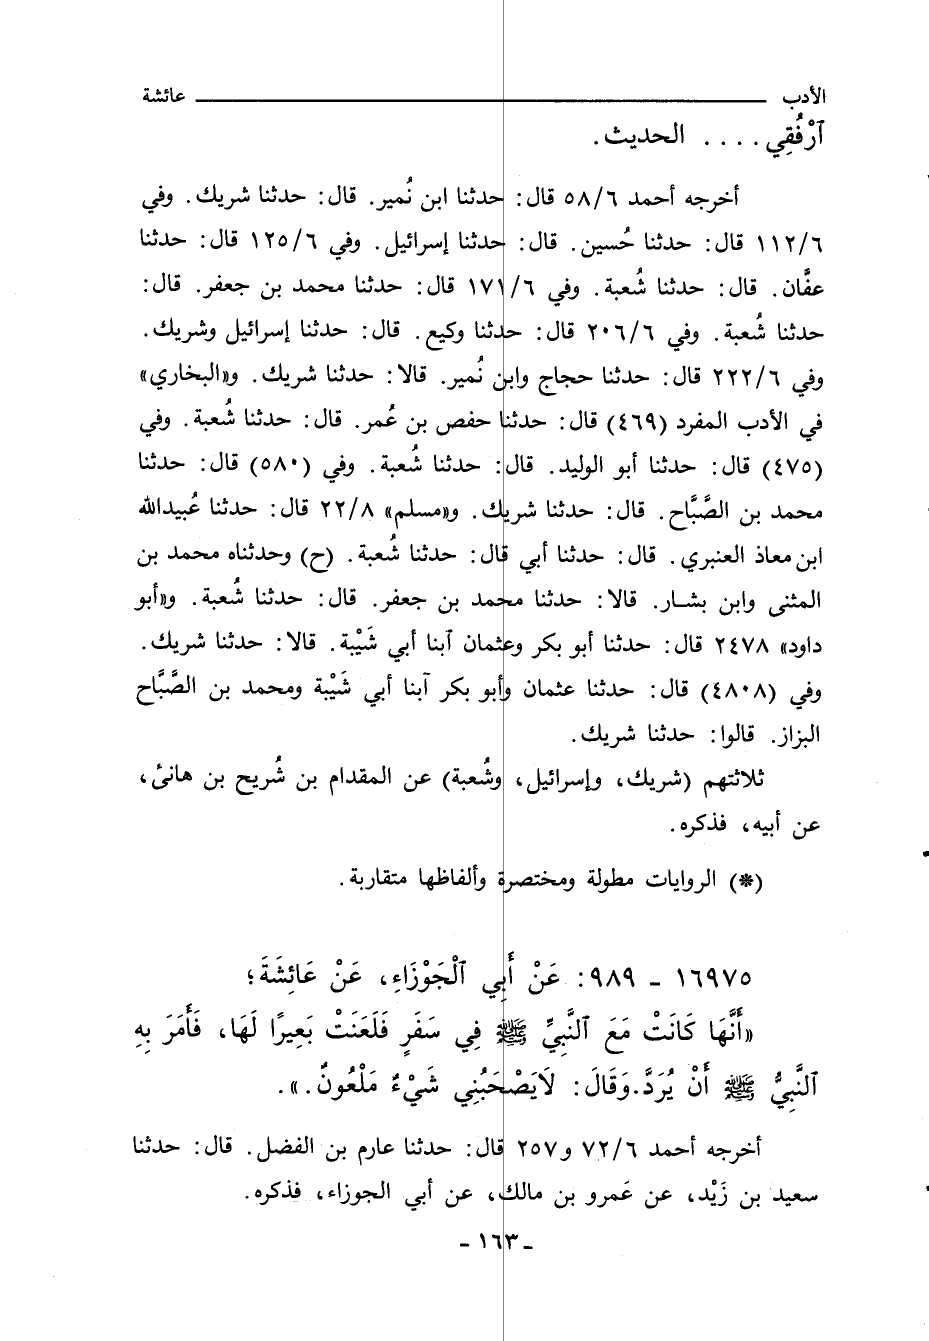 الأدب عائشة
ٱرْفُقِي. . . . الحديث.
أخرجه أحمد ٥٨/٦ قال: حدثنا ابن نُمير. قال: حدثنا شريك. وفي
١١٢/٦ قال: حدثنا حُسين. قال: حدثنا إسرائيل. وفي ١٢٥/٦ قال: حدثنا
عفَّان. قال: حدثنا شُعبة. وفي ١٧١/٦ قال: حدثنا محمد بن جعفر. قال:
حدثنا شُعبة. وفي ٢٠٦/٦ قال: حدثنا وكيع. قال: حدثنا إسرائيل وشريك.
وفي ٢٢٢/٦ قال: حدثنا حجاج وابن نُمير. قالا: حدثنا شريك. و«البخاري»
في الأدب المفرد (٤٦٩) قال: حدثنا حفص بن عُمر. قال: حدثنا شُعبة. وفي
(٤٧٥) قال: حدثنا أبو الوليد. قال: حدثنا شُعبة. وفي (٥٨٠) قال: حدثنا
محمد بن الصَّبَّاح. قال: حدثنا شريك. و«مسلم» ٢٢/٨ قال: حدثنا عُبيدالله
ابن معاذ العنبري. قال: حدثنا أبي قال: حدثنا شُعبة. (ح) وحدثناه محمد بن
المثنى وابن بشار. قالا: حدثنا محمد بن جعفر. قال: حدثنا شُعبة. و«أبو
داود» ٢٤٧٨ قال: حدثنا أبو بكر وعثمان ٱبنا أبي شَيْبة. قالا: حدثنا شريك.
وفي (٤٨٠٨) قال: حدثنا عثمان وأبو بكر ٱبنا أبي شَيْبة ومحمد بن الصَّبَّاح
البزاز. قالوا: حدثنا شريك.
ثلاثتهم (شريك، وإسرائيل، وشُعبة) عن المقدام بن شُريح بن هانئ،
عن أبيه، فذكره.
(*) الروايات مطولة ومختصرة وألفاظها متقاربة.
١٦٩٧٥ - ٩٨٩: عَنْ أَبِي ٱلْجَوْزَاءِ، عَنْ عَائِشَةَ؛
«أَنَّهَا كَانَتْ مَعَ ٱلنَّبِيِّ ﷺ فِي سَفَرٍ فَلَعَنَتْ بَعِيرًا لَهَا، فَأَمَرَ بِهِ
ٱلنَّبِيُّ ﷺ أَنْ يُرَدَّ. وَقَالَ: لَايَصْحَبُنِي شَيْءٌ مَلْعُونٌ.».
أخرجه أحمد ٧٢/٦ و٢٥٧ قال: حدثنا عارم بن الفضل. قال: حدثنا
سعيد بن زَيْد، عن عَمرو بن مالك، عن أبي الجوزاء، فذكره.
- ١٦٣ -